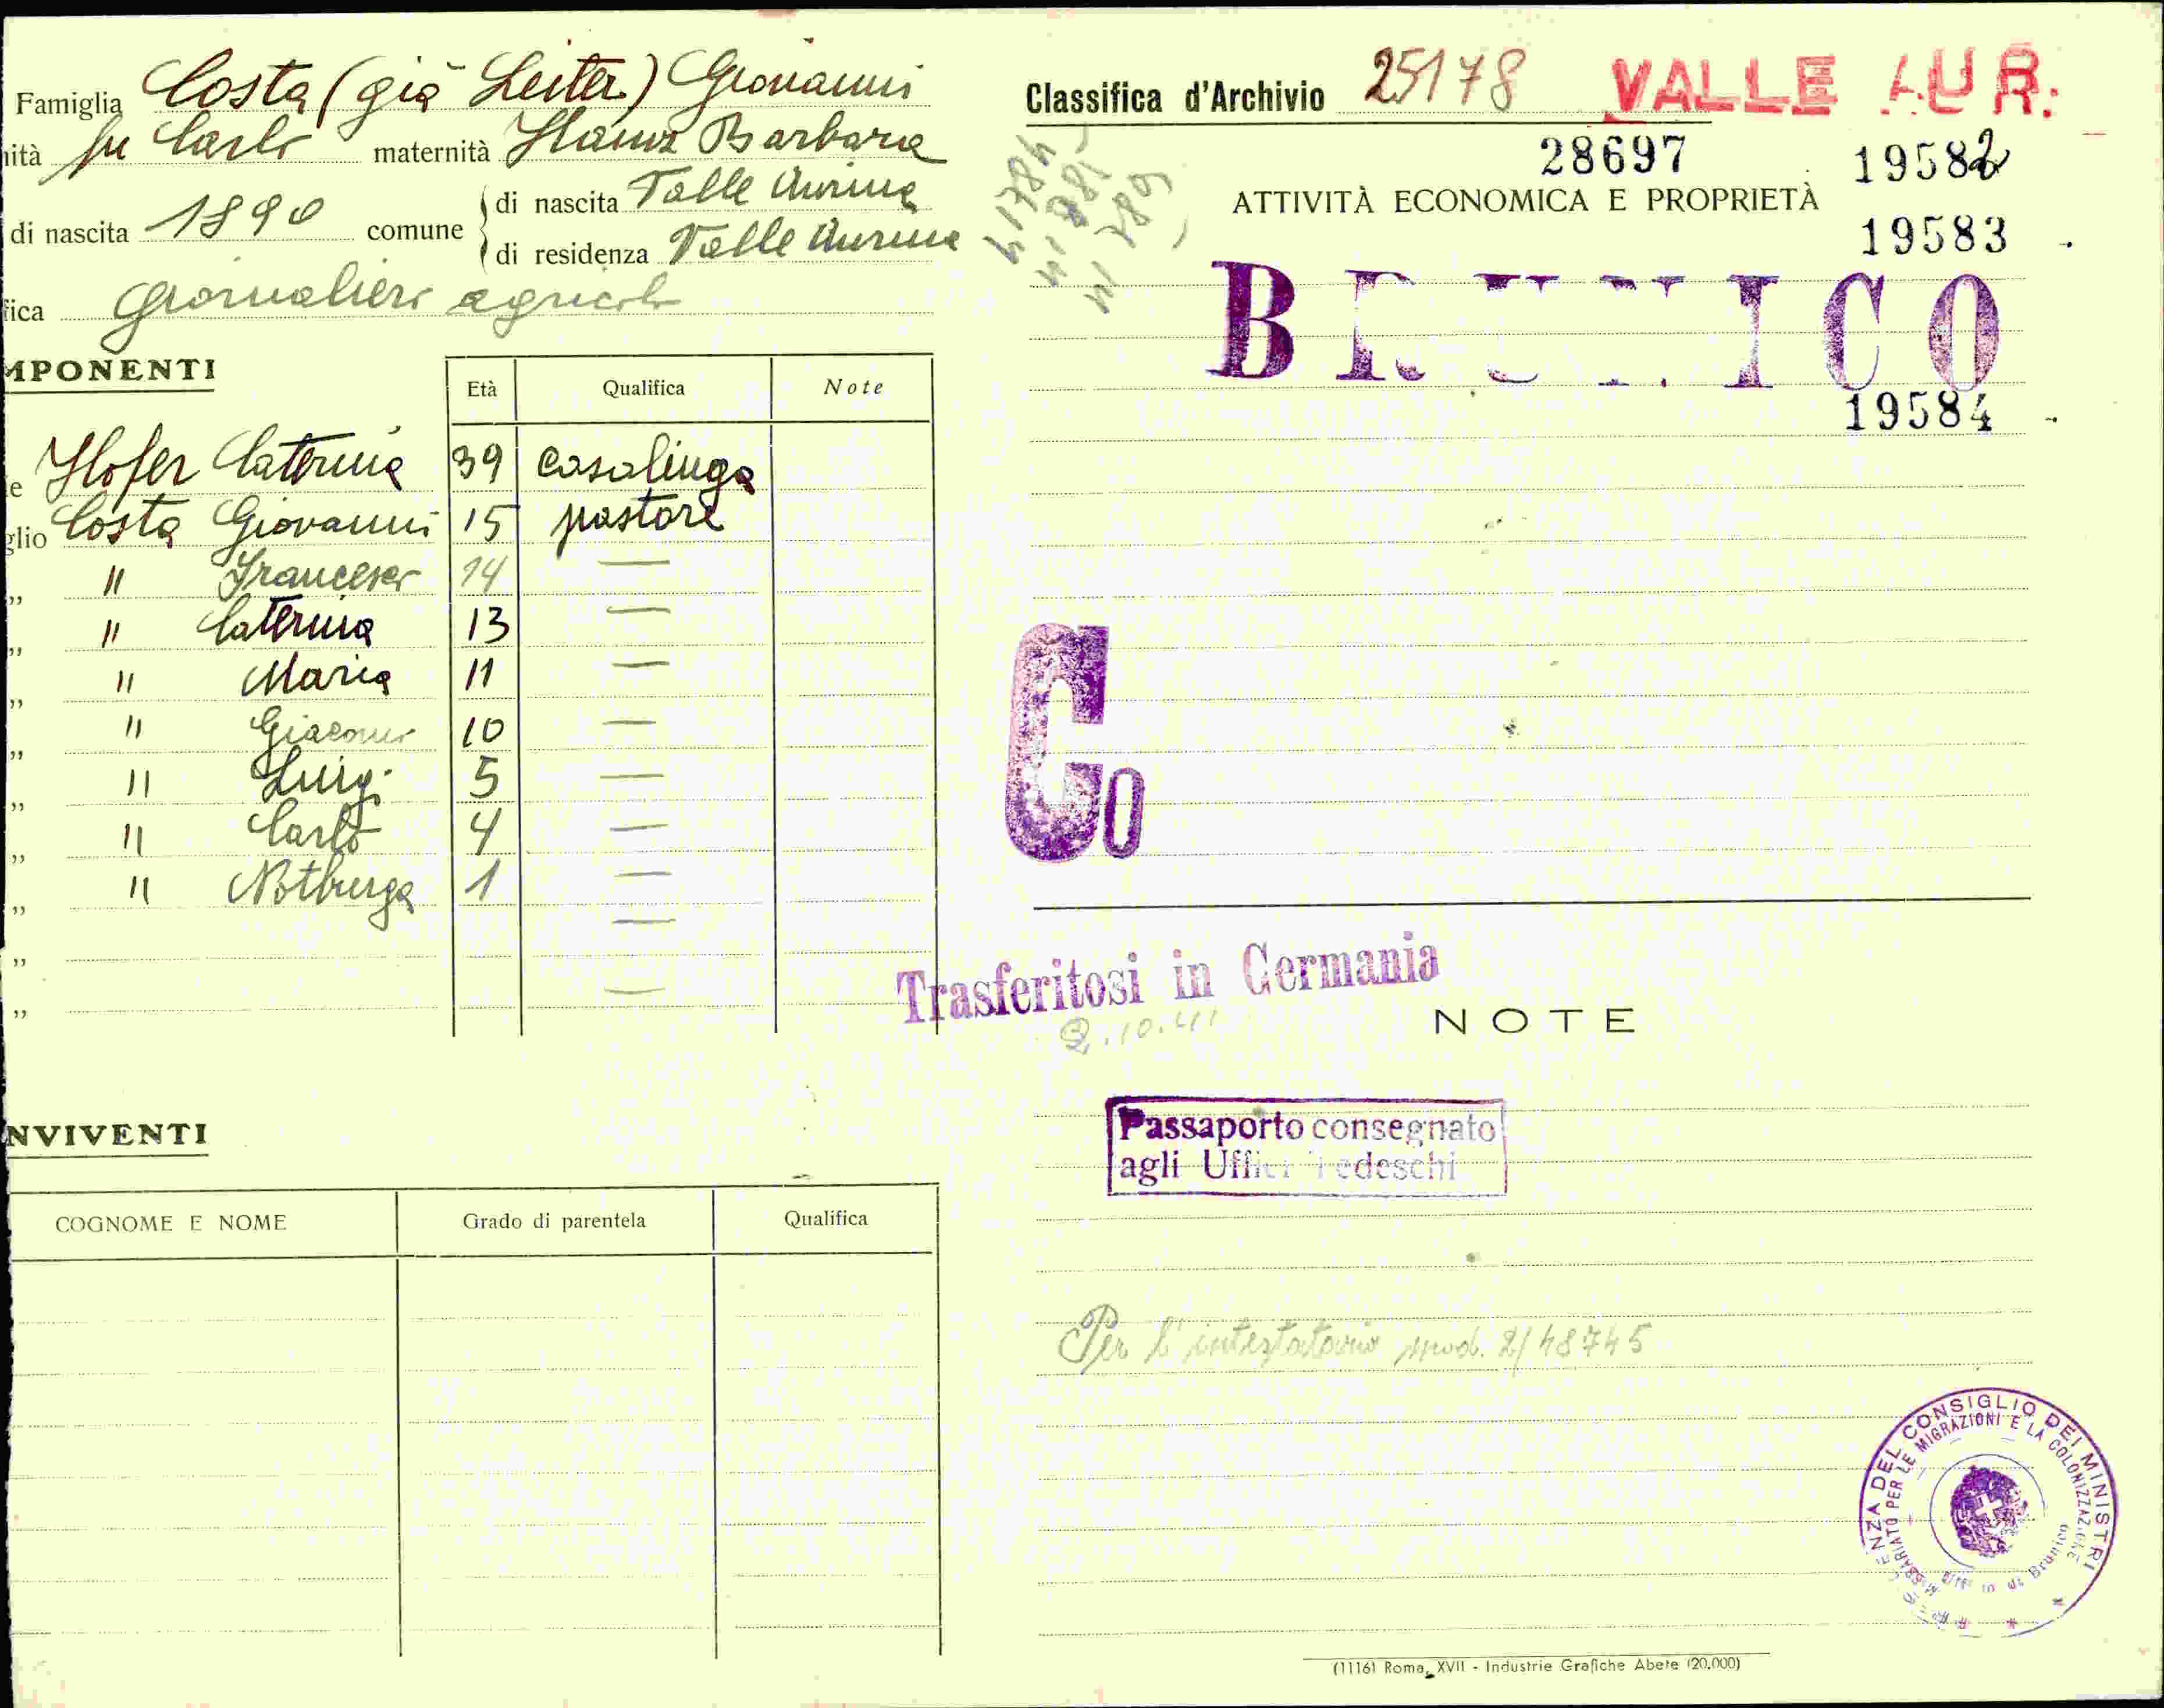 Famiglia Costa (già Leiter) Giovanni
ità fu Carlo maternità Barbara
di nascita 1890 comune di nascita Valle Aurina
di residenza Valle Aurina
fica giornaliero agricolo
MPONENTI
Età Qualifica Note
e Hofer Caterina 39 casalinga
glio Costa Giovanni 15 pastore
„ " Francesco 14 —
„ " Caterina 13 —
„ " Maria 11 —
„ " Giacomo 10 —
„ " Luigi 5 —
„ " Carlo 4 —
„ " Notburga 1 —
„ —
„ —
NVIVENTI
COGNOME E NOME Grado di parentela Qualifica
Classifica d'Archivio 25178 VALLE AUR.
28697 19582
ATTIVITÀ ECONOMICA E PROPRIETÀ
19583
BRUNICO
19584
Co
Trasferitosi in Germania
2.10.41
NOTE
Passaporto consegnato
agli Uffici Tedeschi
Per l'intestatario mod. 2/48745
CONSIGLIO DEI MINISTRI
PER LE MIGRAZIONI E LA COLONIZZAZIONE
di Brunico
(1116) Roma, XVII - Industrie Grafiche Abete (20.000)